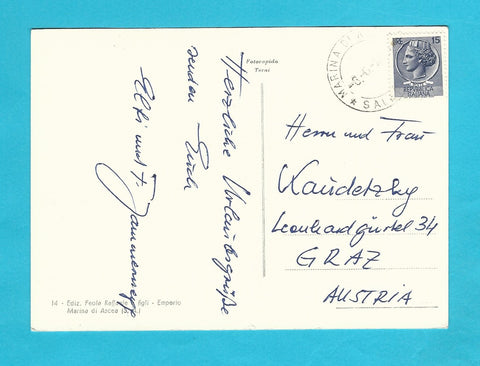 Herzliche Urlaubsgrüße
senden Euch
Elfi und F.
Fotocepida
Terni
MARINA DI
SAL
15
REPUBBLICA
ITALIANA
Herrn und Frau
Kaudetzky
Leonhardgürtel 34
GRAZ
AUSTRIA
14 - Ediz. Feola Raffaele figli - Emporio
Marina di Ascea